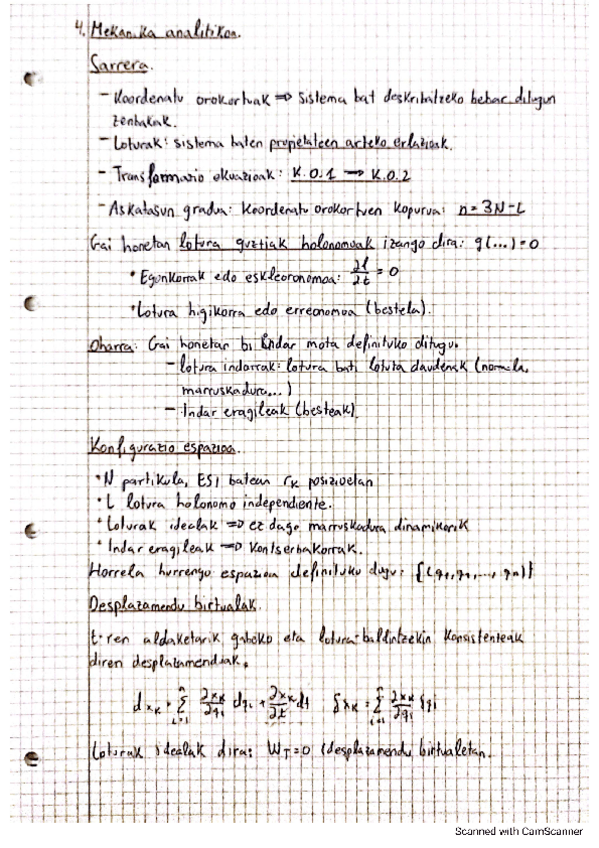 4. Mekanika analitikoa.
Sarrera.
- Koordenatu orokortuak => sistema bat deskribatzeko behar ditugun
zenbakiak.
- Loturak: sistema baten propietateen arteko erlazioak.
- Transformazio ekuazioak: K.O.1 → K.O.2
- Askatasun gradua: Koordenatu orokortuen kopurua: n = 3N-L
Gai honetan lotura guztiak holonomoak izango dira: g(...) = 0
• Egonkorrak edo eskleronomoa: ∂l/∂t = 0
• Lotura higikorra edo erreonomoa (bestela).
Oharra: Gai honetan bi indar mota definituko ditugu.
- lotura indarrak: lotura bati lotuta daudenak (normala,
marruskadura...)
- Indar eragileak (besteak)
Konfigurazio espazioa.
• N partikula, ESI batean r_k posizioetan
• L lotura holonomo independiente.
• Loturak idealak => ez dago marruskadura dinamikorik
• Indar eragileak => Kontserbakorrak.
Horrela hurrengo espazioa definituko dugu: {(q₁, q₂, ..., qₙ)}
Desplazamendu birtualak.
t-ren aldaketarik gabeko eta lotura-baldintzekin konsistenteak
diren desplazamenduak.
dx_k = Σ_{i=1}^{n} ∂x_k/∂q_i dq_i + ∂x_k/∂t dt   δx_k = Σ_{i=1}^{n} ∂x_k/∂q_i δq_i
Loturak idealak dira: W_T = 0 (desplazamendu birtualetan.
Scanned with CamScanner